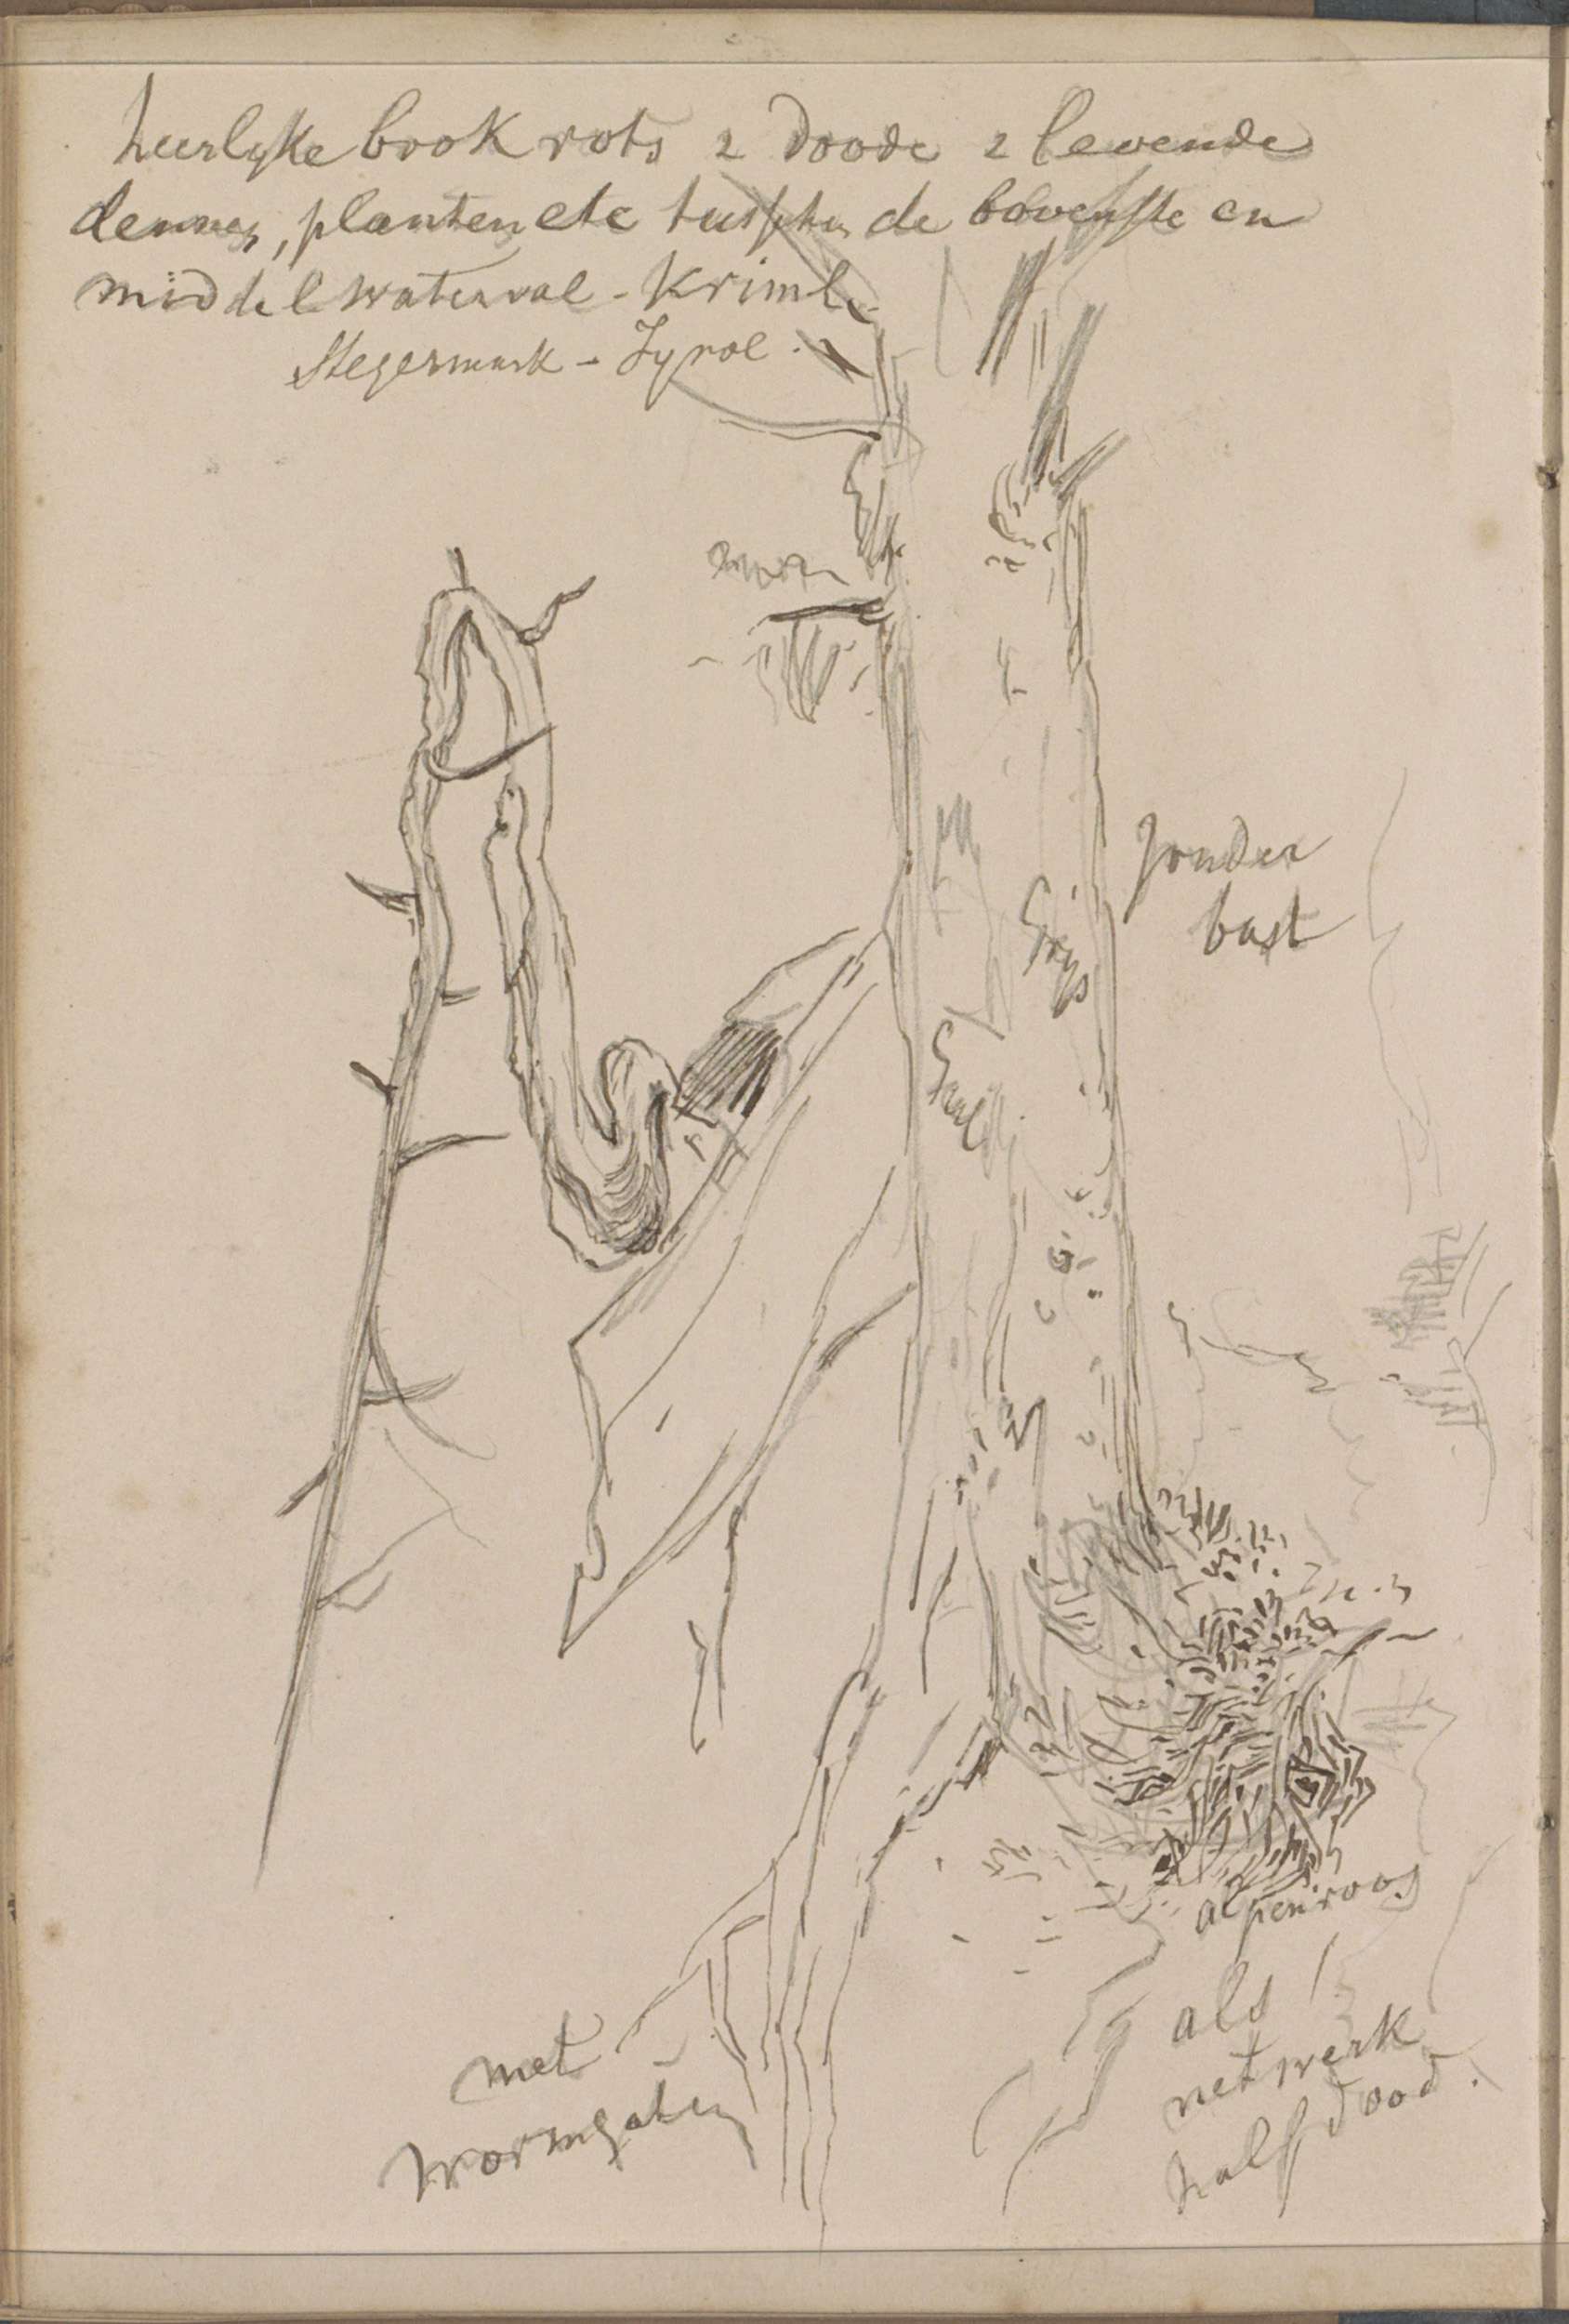 heerlyke brok rots 2 doode 2 levende
dennen, planten etc tusschen de bovenste en
middel waterval - Krimle
Stegermark - Tyrol.
zonder
bast
Grys
Geel
alpenroos
als
netwerk
half dood.
met
wormgaten